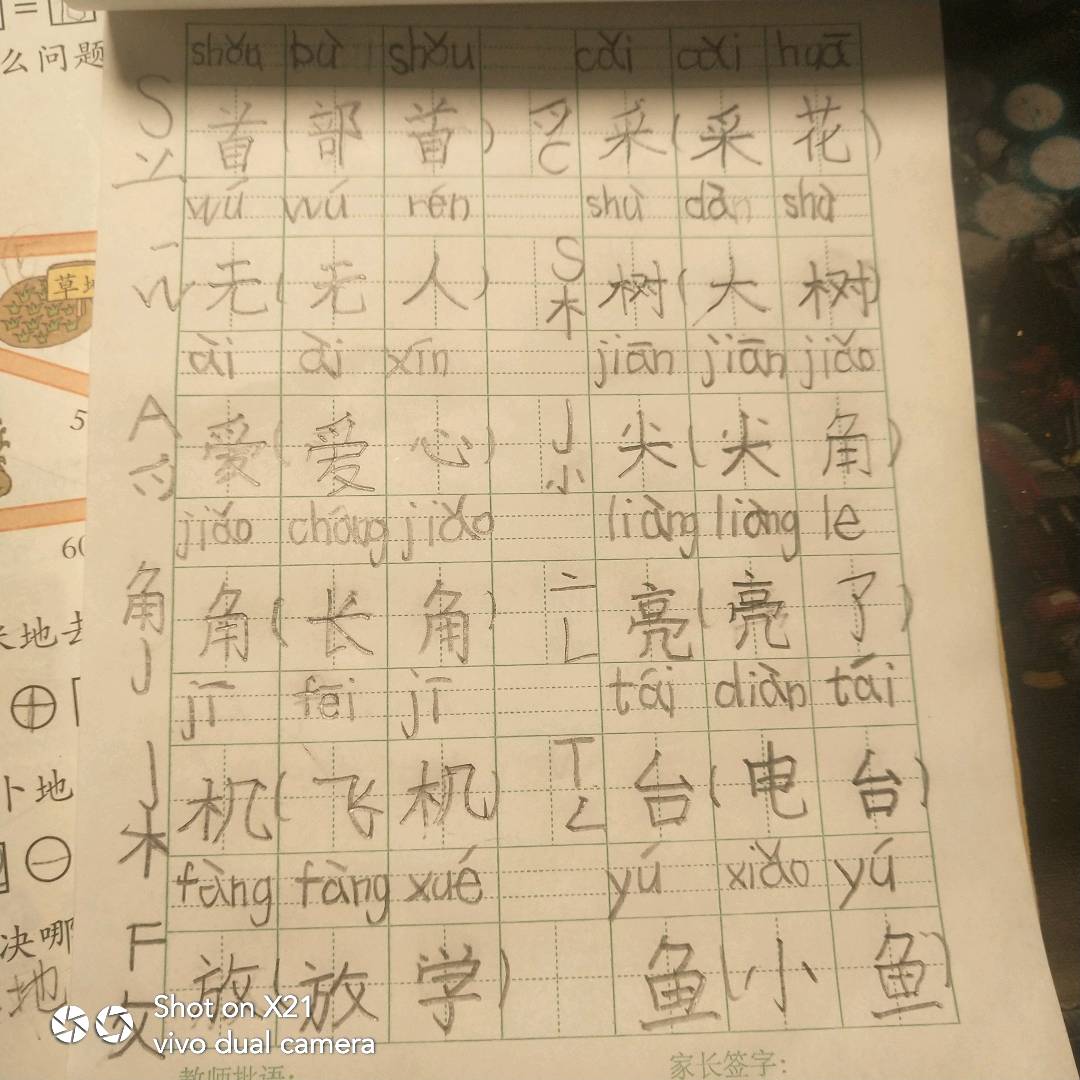 么问题
shǒu bù shǒu cǎi cǎi huā
S 䒑 首(部首) 爫 C 采(采花)
wú wú rén shù dà shù
一 W 无(无人) S 木 树(大树)
草地
ài ài xīn jiān jiān jiǎo
A 爫 爱(爱心) J 小 尖(尖角)
jiǎo cháng jiǎo liàng liàng le
角 J 角(长角) 亠 L 亮(亮了)
jī fēi jī tái diàn tái
J 木 机(飞机) T ㄥ 台(电台)
卜地
fàng fàng xué yú xiǎo yú
F 攵 放(放学) 鱼(小鱼)
决哪
地
Shot on X21
vivo dual camera
教师批语:
家长签字: